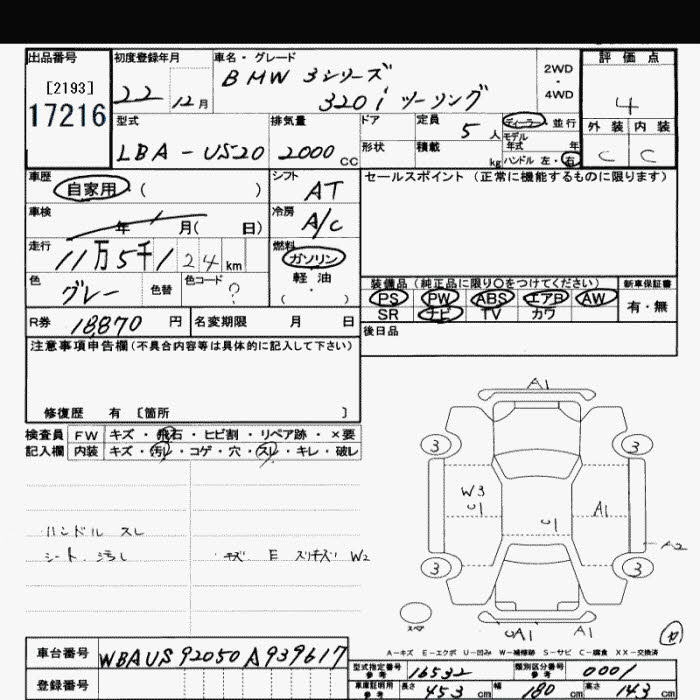 出品番号 初度登録年月 車名・グレード 評価点
[2193] BMW 3シリーズ 2WD
17216 22 12月 320i ツーリング ・ 4WD 4
型式 排気量 ドア 定員 5人 ディーラー・並行 外装 内装
LBA-US20 2000cc 形状 積載 kg モデル年式 年 ハンドル 左・右 C C
車歴 自家用 ( ) シフト AT セールスポイント(正常に機能するものに限ります)
車検 年 月( 日) 冷房 A/C
走行 11万5千124km 燃料 ガソリン
色 グレー 色替 色コード ? 軽油 ( ・ )
装備品(純正品に限り○をつけてください) 新車保証書
PS PW ABS エアB AW 有・無
SR ナビ TV カワ
R券 18,870円 名変期限 月 日 後日品
注意事項申告欄(不具合内容等は具体的に記入して下さい)
修復歴 有 〔箇所 〕
検査員 FW キズ・飛石・ヒビ割・リペア跡・×要
記入欄 内装 キズ・汚レ・コゲ・穴・スレ・キレ・破レ
ハンドル スレ
シート 汚レ
A1
3 3
W3
U1 U1 A1
A2
3 3
スペア
UA1 A1
A-キズ E-エクボ U-凹み W-補修跡 S-サビ C-腐食 XX-交換済
車台番号 WBAUS92050A939617
登録番号
型式指定番号 参考 16532 類別区分番号 参考 0001
車庫証明用 参考 長さ 453cm 幅 180cm 高さ 143cm